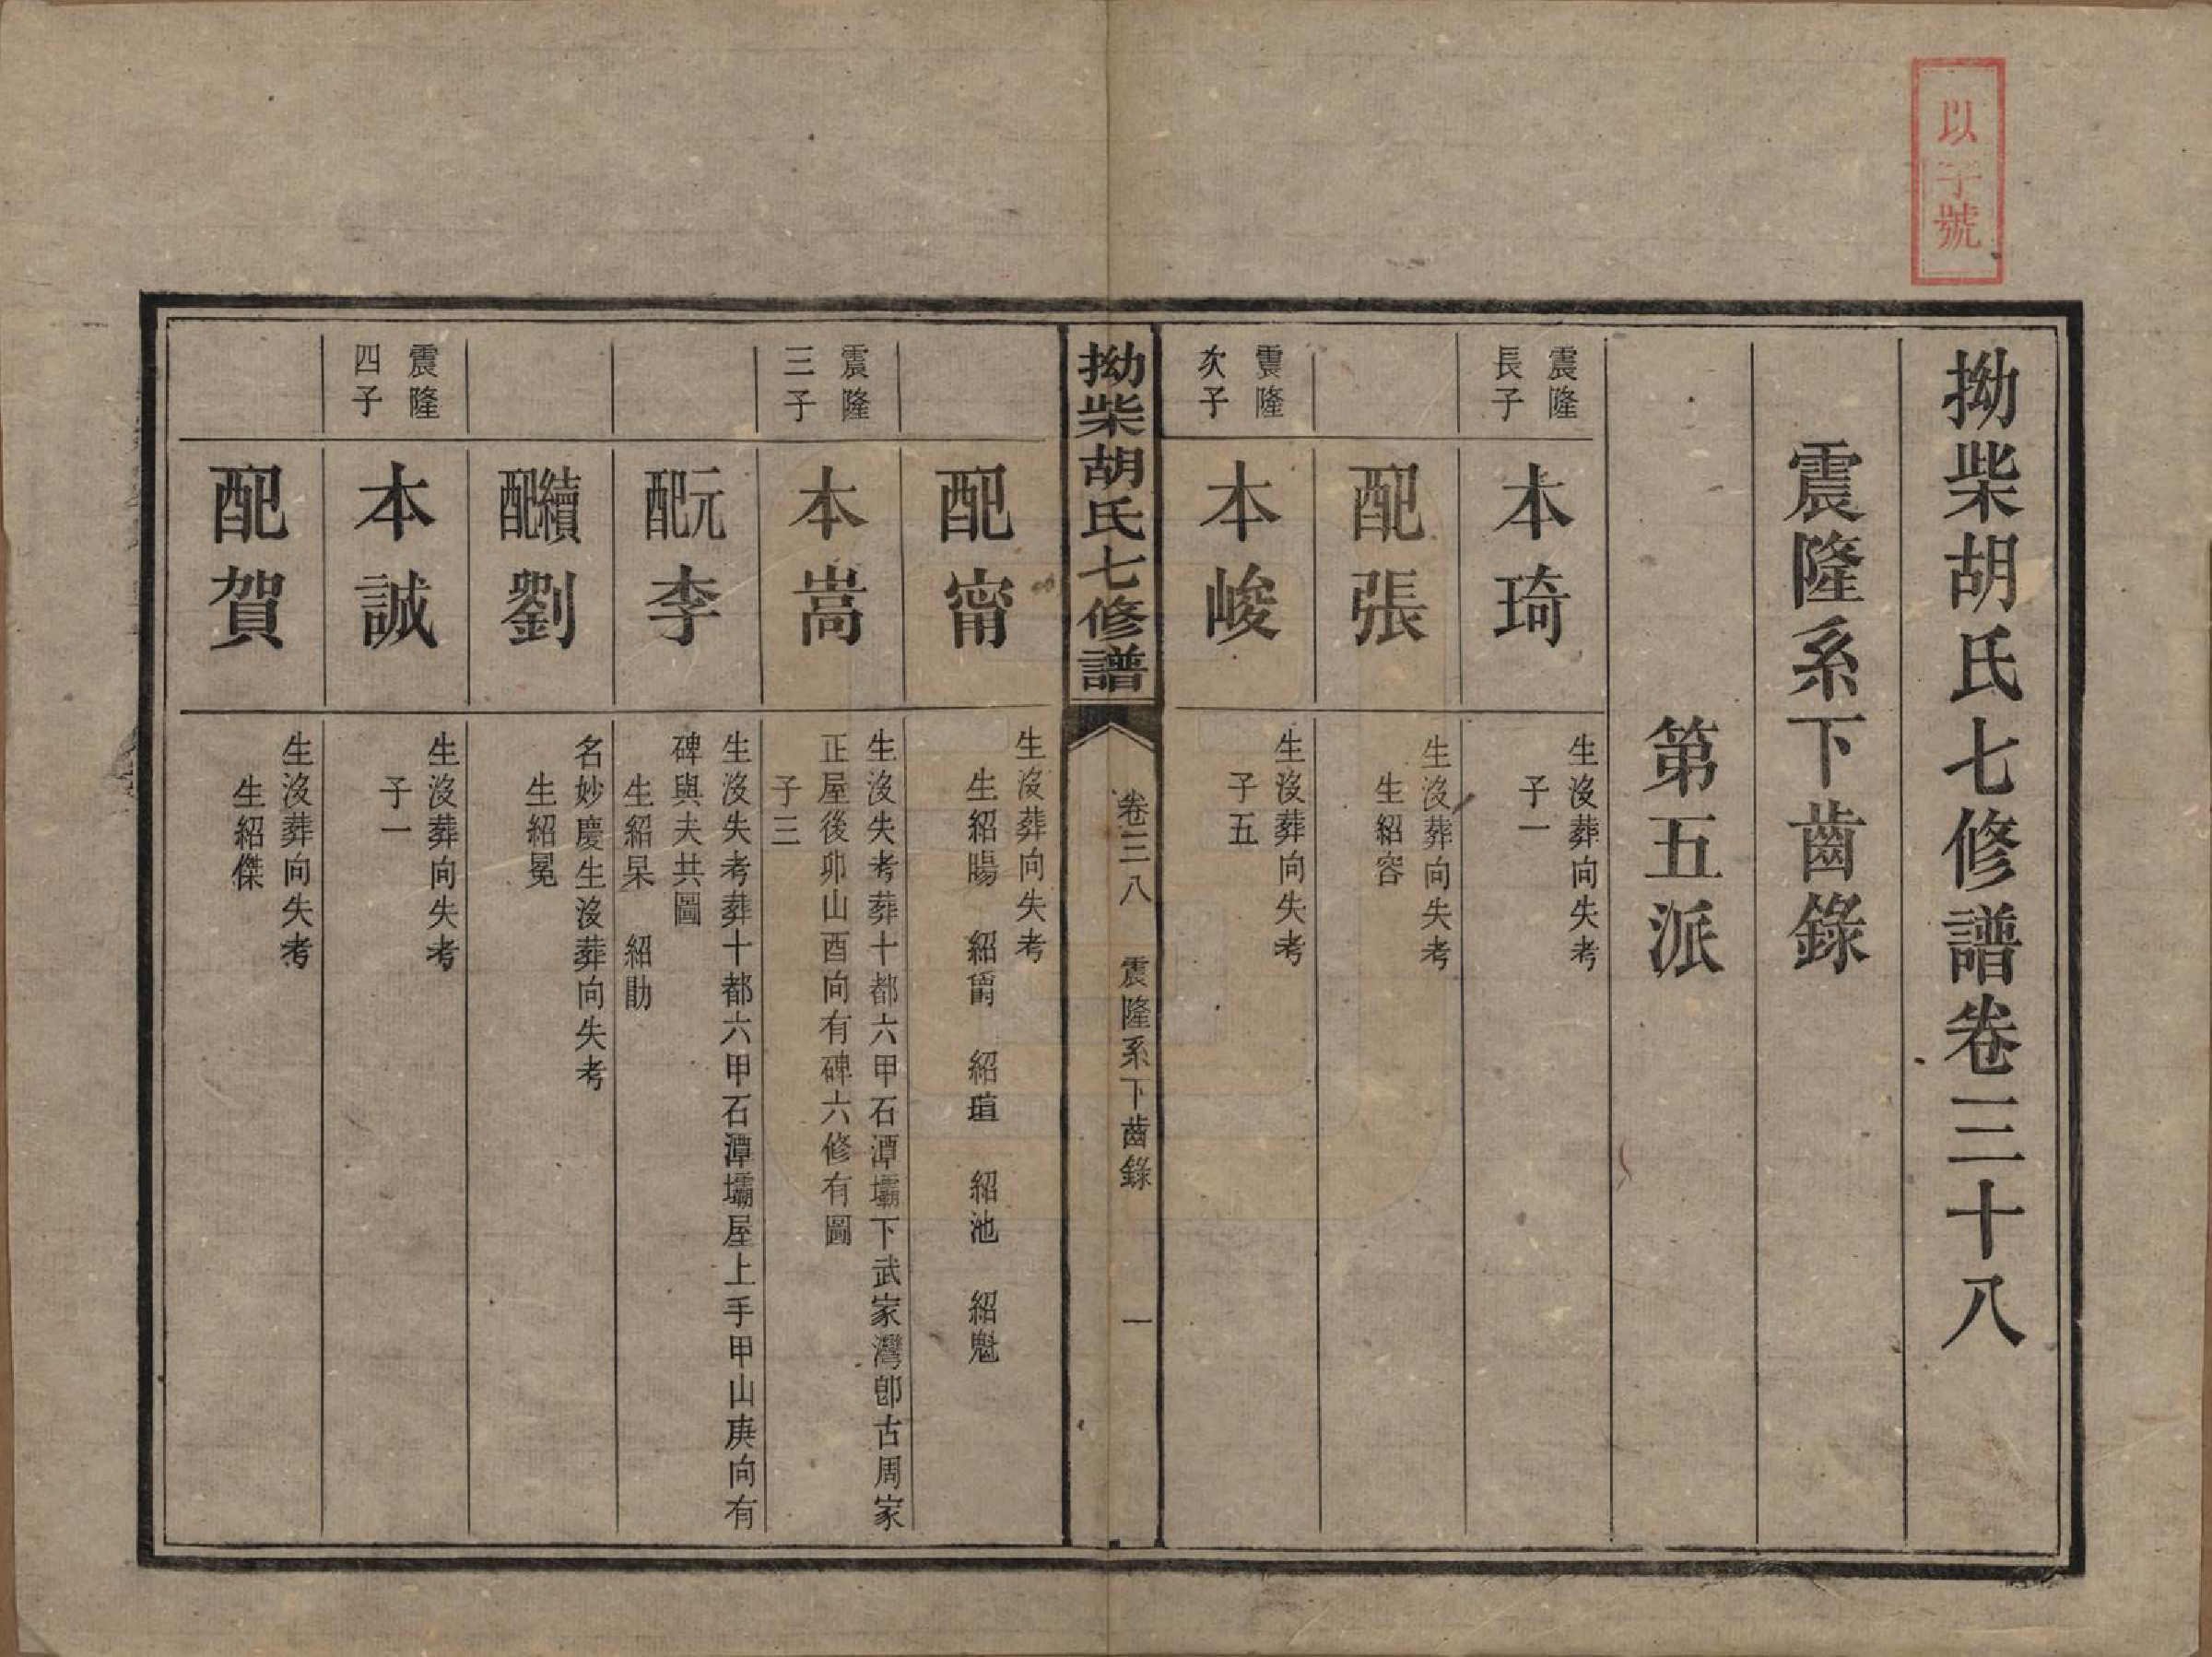 以字號
拗柴胡氏七修譜卷三十八
震隆系下齒錄
第五派
震隆
長子
本琦
生沒葬向失考
子一
配張
生沒葬向失考
生紹容
震隆
次子
本峻
生沒葬向失考
子五
拗柴胡氏七修譜
卷三八
震隆系下齒錄
一
配甯
生沒葬向失考
生紹暘 紹甯 紹瑄 紹池 紹魁
震隆
三子
本嵩
生沒失考葬十都六甲石潭壩下武家灣卽古周家
正屋後卯山酉向有碑六修有圖
子三
元配李
生沒失考葬十都六甲石潭壩屋上手甲山庚向有
碑與夫共圖
生紹杲 紹勛
續配劉
名妙慶生沒葬向失考
生紹冕
震隆
四子
本誠
生沒葬向失考
子一
配賀
生沒葬向失考
生紹傑